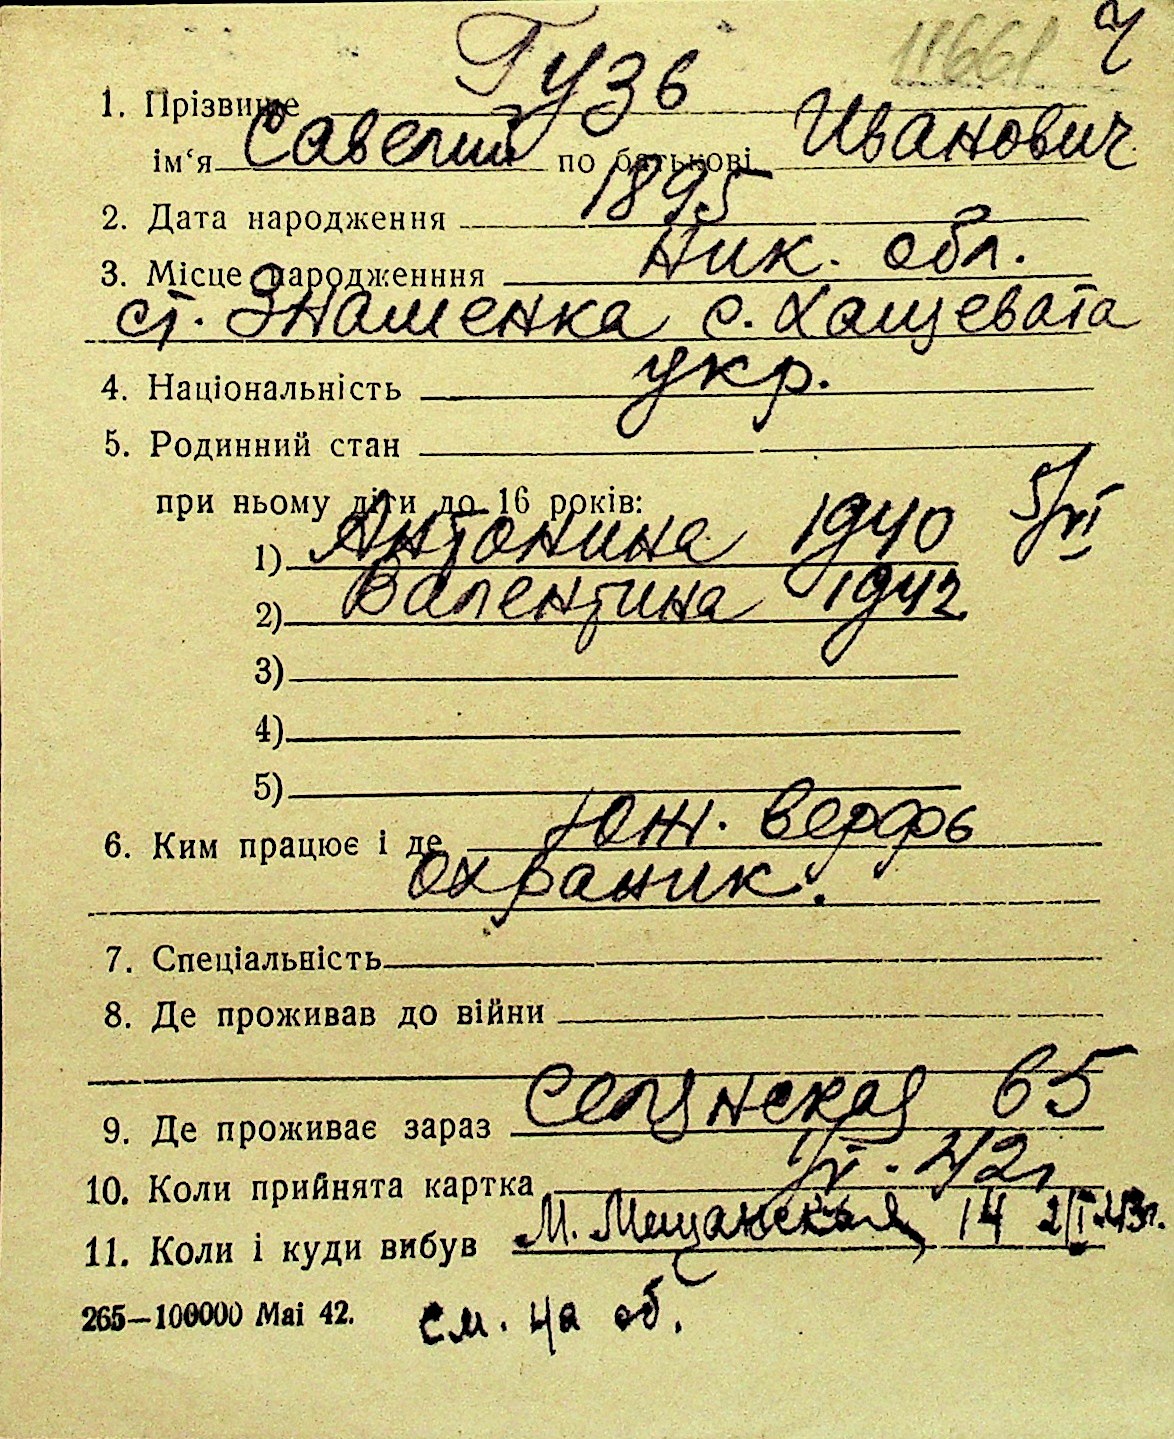 11661 Ч
1. Прізвище Гузь
ім‘я Савелий по батькові Иванович
2. Дата народження 1895
3. Місце народженння Ник. обл.
ст. Знаменка с. Хащевата
4. Національність укр.
5. Родинний стан
при ньому діти до 16 років:
1) Антонина 1940 5/VI
2) Валентина 1942
3)
4)
5)
6. Ким працює і де Юж. верфь
охраник.
7. Спеціальність
8. Де проживав до війни
9. Де проживає зараз Селянская 65
10. Коли прийнята картка 42г
11. Коли і куди вибув М. Мещанская 14 2/I.43г.
265—100000 Mai 42. см. на об.